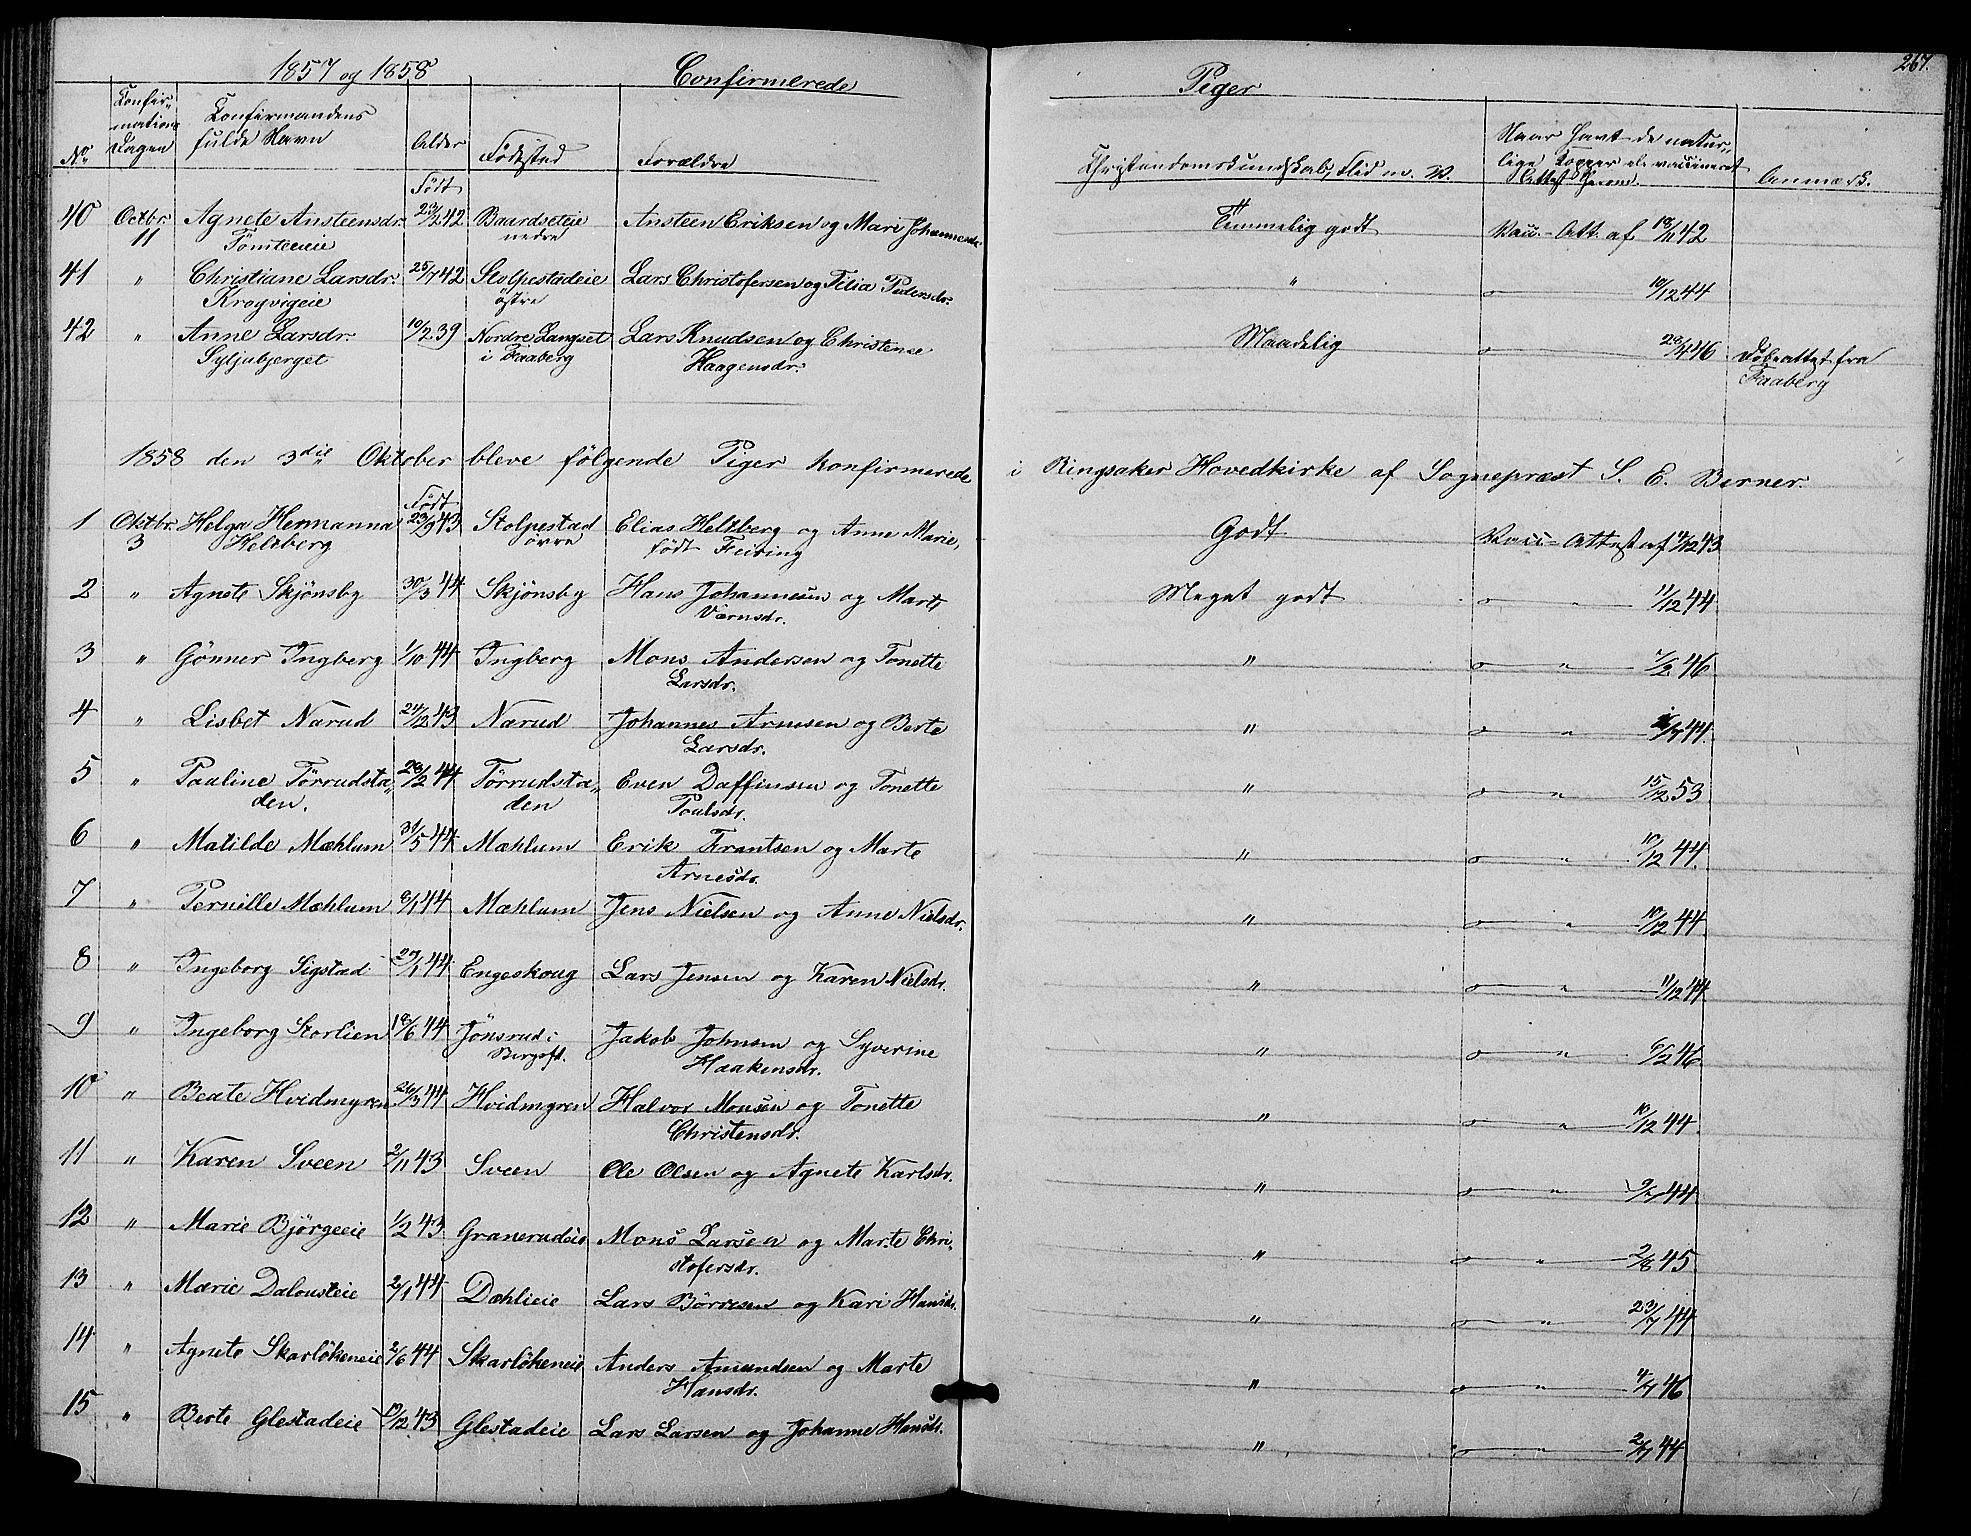 1857 og 1858 Confirmerede Piger 267.
No Confirmations Dagen Confirmandens fulde Navn Alder Födested Forældre Christendomskundskab, Flid m. V. Naar havt de naturlige Kopper el. vaccineret Anmærk.
40 Octbr. 11 Agnete Ansteensdr. Födt 42 Baardseteie Ansteen Eriksen og Mari Johannesdr. Temmelig godt Vacc.-Att. af 42
Tömteeie nedre
41 " Christiane Larsdr. 25/7 42 Stolpestadeie Lars Christofersen og Filia Pedersdr. " 10/12 44
Krogvigeie östre
42 " Anne Larsdr. 10/2 39 Nordre Langset Lars Knudsen og Christense Maadelig 46 Döbeattest fra
Syljubjerget i Faaberg Haagensdr. Faaberg
1858 den 3die Oktober bleve følgende Piger konfirmerede i Ringsaker Hovedkirke af Sognepræst S. E. Berner.
1 Oktbr. 3 Helga Hermanna Födt 23/9 43 Stolpestad Elias Heltberg og Anne Marie, Godt Vacc-Attest af 12 43
Heltberg övre født Feiring
2 " Agnete Skjönsby 30/3 44 Skjönsby Hans Johannesen og Marte Meget godt " 11/12 44
Værnsdr.
3 " Gönner Ingberg 1/10 44 Ingberg Mons Andersen og Tonette " " 7/2 46
Larsdr.
4 " Lisbet Narud 12 43 Narud Johannes Arnesen og Berte " " 44
Larsdr.
5 " Pauline Törrudsta- 28/2 44 Törrudsta- Even Daffinsen og Tonette " " 15/12 53
den. den Poulsdr.
6 " Matilde Mæhlum 31/5 44 Mæhlum Erik Frantsen og Marte " " 10/12 44
Arnesdr.
7 " Pernille Mæhlum 8/1 44 Mæhlum Jens Nielsen og Anne Nielsdr. " " 10/12 44
8 " Ingeborg Sigstad 44 Engeskoug Lars Jensen og Karen Nielsdr. " " 11/12 44
9 " Ingeborg Storlien 18/6 44 Jönsrud i Jakob Johnsen og Syverine " " 6/2 46
Haakensdr.
10 " Beate Hvidmyren 26/3 44 Hvidmyren Halvor Monsen og Tonette " " 10/12 44
Christensdr.
11 " Karen Sveen 2/11 43 Sveen Ole Olsen og Agnete Karlsdr. " " 9/7 44
12 " Marie Bjørgeeie 1/2 43 Granerudeie Mons Larsen og Marte Chri- " " 2/8 45
stofersdr.
13 " Marie Dalousteie 2/1 44 Dæhlieie Lars Börresen og Kari Hansdr. " " 23/7 44
14 " Agnete Skarlökeneie 2/6 44 Skarlökeneie Anders Amundsen og Marte " " 46
Hansdr.
15 " Berte Glestadeie 12 43 Glestadeie Lars Larsen og Johanne Hansdr. " " 44